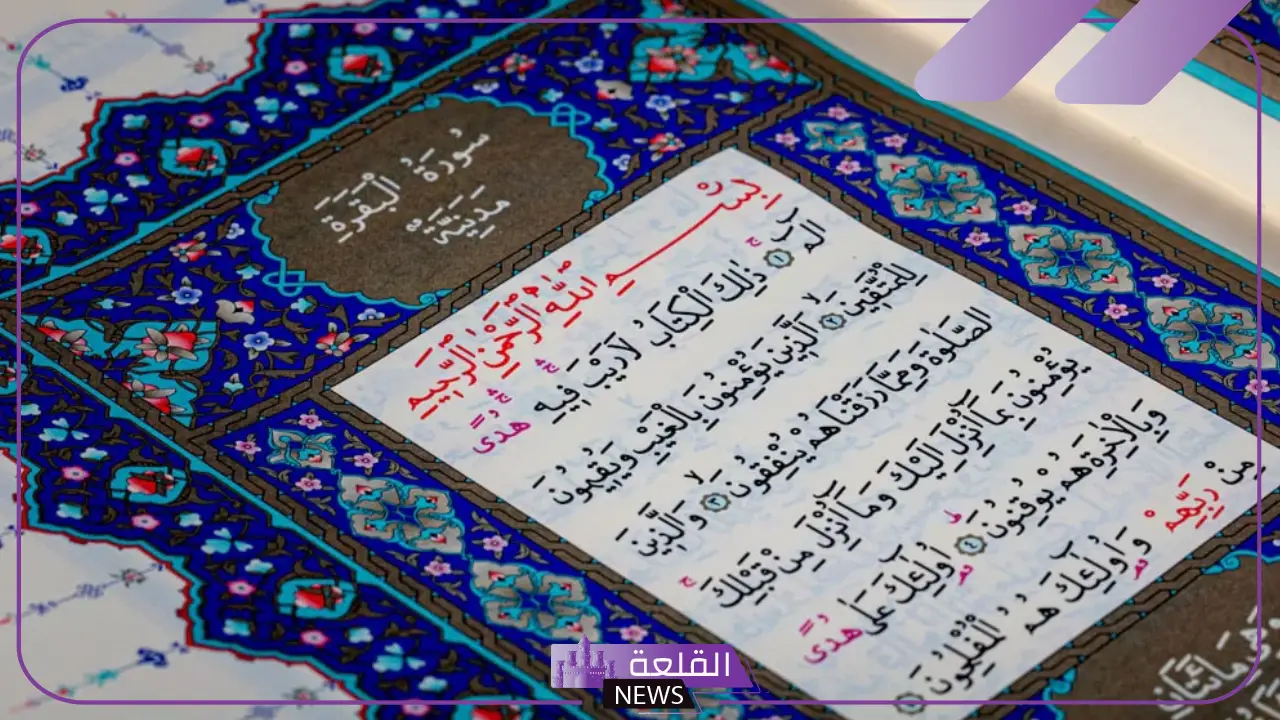 سُورَةُ الْبَقَرَةِ
مَدَنِيَّةٌ
بِسْمِ اللَّهِ الرَّحْمٰنِ الرَّحِيمِ
الٓمٓ ۝١ ذٰلِكَ الْكِتَابُ لَا رَيْبَ فِيهِ هُدًى
لِلْمُتَّقِينَ ۝٢ اَلَّذِينَ يُؤْمِنُونَ بِالْغَيْبِ وَيُقِيمُونَ
الصَّلٰوةَ وَمِمَّا رَزَقْنَاهُمْ يُنْفِقُونَ ۝٣ وَالَّذِينَ
يُؤْمِنُونَ بِمَآ اُنْزِلَ اِلَيْكَ وَمَآ اُنْزِلَ مِنْ قَبْلِكَ
وَبِالْاٰخِرَةِ هُمْ يُوقِنُونَ ۝٤ اُولٰٓئِكَ عَلٰى هُدًى
مِنْ رَبِّهِمْ وَاُولٰٓئِكَ هُمُ الْمُفْلِحُونَ
القلعة
NEWS